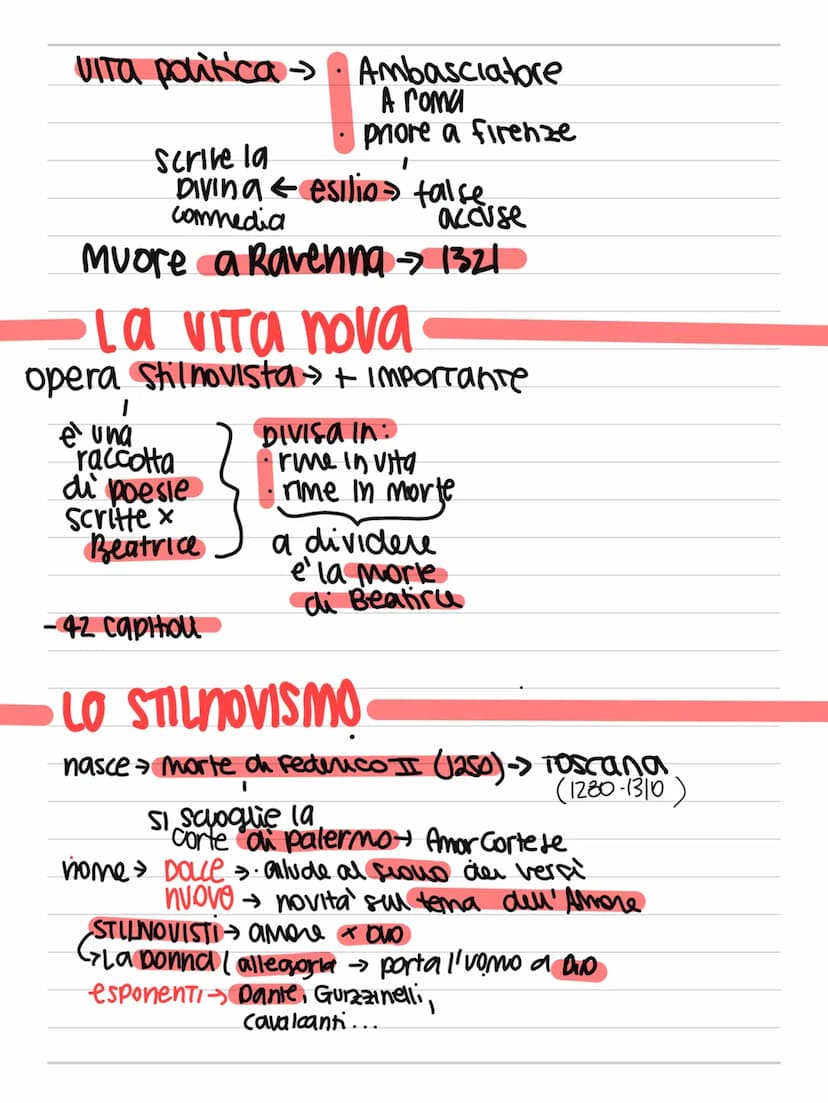 VITA politica → · Ambasciatore
A roma
· priore a firenze
scrive la
DIVINA ← esilio → false
commedia accuse
MUore a Ravenna → 1321
LA VITA NOVA
opera Stilnovista → + IMPORTANTE
è una
raccotta
di poesie
scritte x
Beatrice
DIVISA IN:
· rime in vita
· rime in morte
a dividere
e' la morte
di Beatrice
- 42 capitoli
LO STILNOVISMO
nasce → morte di Federico II (1250) → TOSCANA
(1280-1310)
SI scioglie la
corte di palermo → Amor Cortese
nome → DOLCE → · allude al suono dei versi
NUOVO → novità sul tema dell'Amore
STILNOVISTI → amore x DIO
↳ La Donna ( allegoria → porta l'uomo a DIO
esponenti → Dante, Guizzinelli,
Cavalcanti...